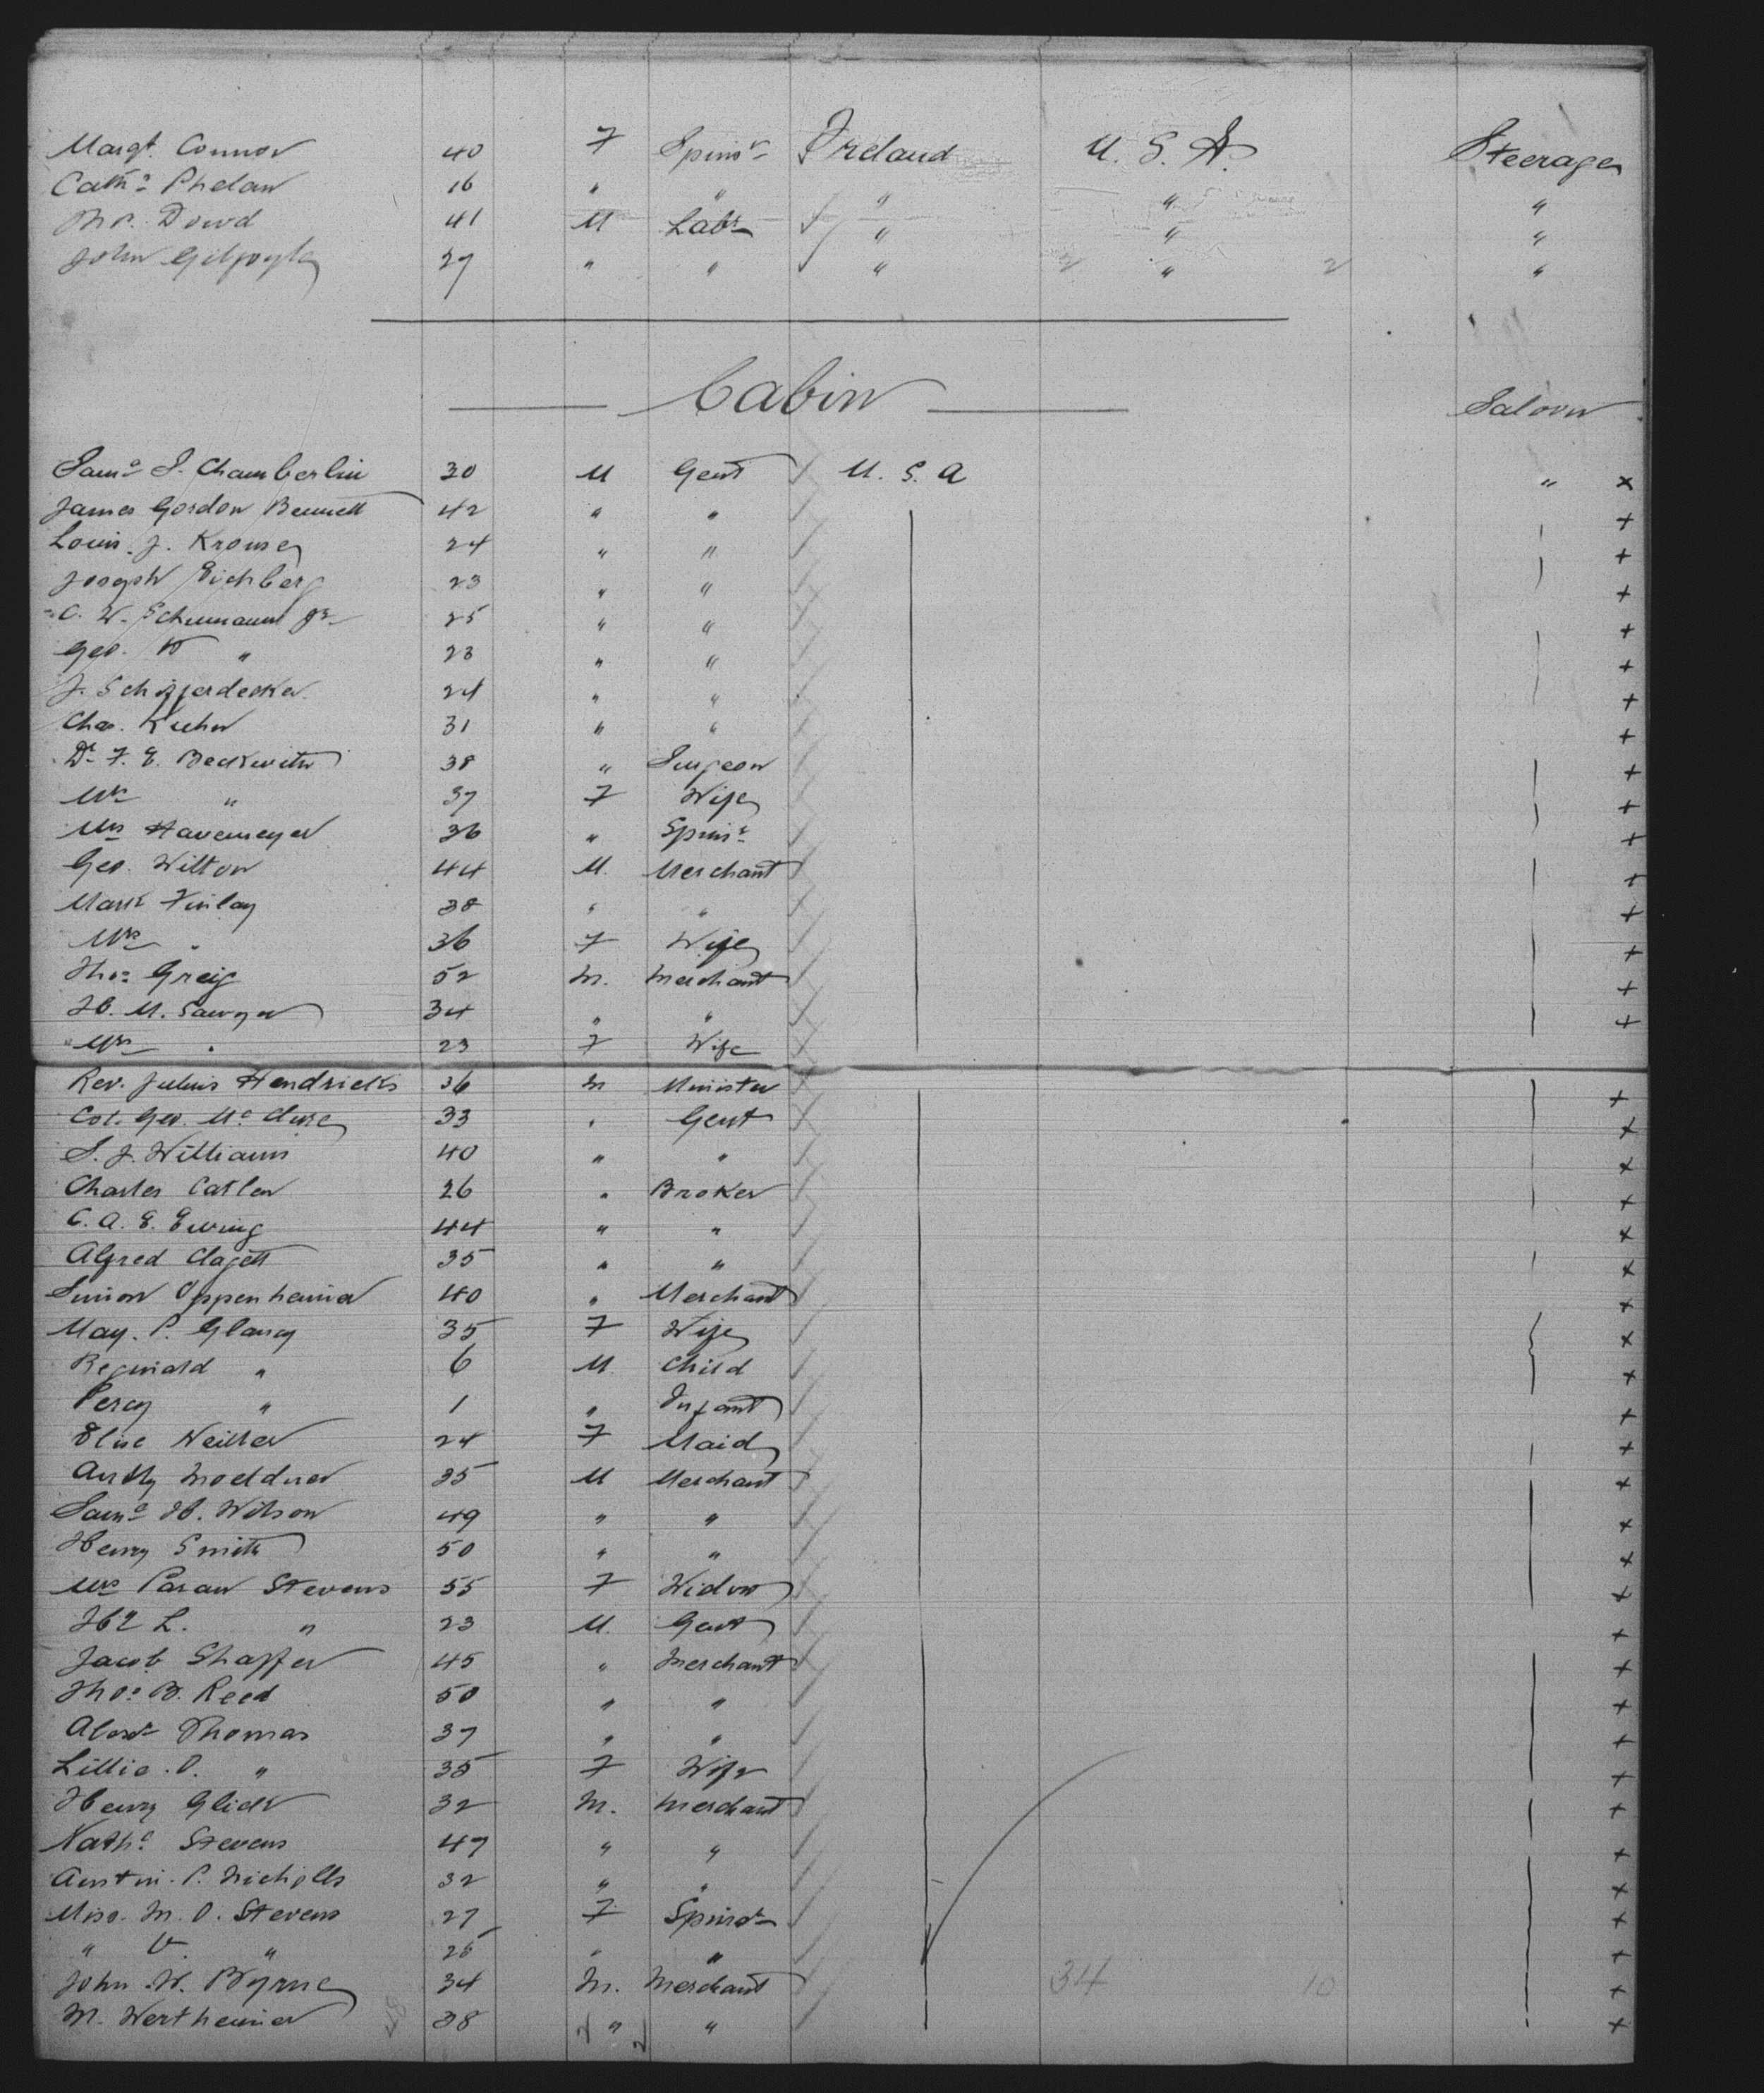 Margt. Connor 40 F Spinsr Ireland U. S. A. Steerage
Cathe Phelan 16 " " " " "
Dowd 41 M Labr " " "
John Gilfoyle 27 " " " 2 " 2 "
Cabin Saloon
Saml S. Chamberlin 30 M Gent U. S. A " x
James Gordon Bennett 42 " " +
Louis J. Krouse 24 " " +
Joseph Eichberg 23 " " +
C. W. Schumann Jr 25 " " +
Geo. W " 23 " " +
J. Schifferdecker 24 " " +
Chas. Kuhn 31 " " +
Dr F. E. Beckwith 38 " Surgeon +
Mrs " 37 F Wife +
Havemeyer 36 " Spinsr +
Geo. Wilton 44 M. Merchant +
Mark Finlay 38 " " +
Mrs " 36 F Wife +
Thos Greig 52 M. Merchant +
H. M. Sawyer 34 " " +
Mrs " 23 F Wife
Rev. Julius Hendricks 36 M Minister +
Col. Geo. McClure 33 " Gent +
S. J. Williams 40 " " +
Charles Catlen 26 " Broker +
C. A. E. Ewing 44 " " x
Alfred Clagett 35 " " x
Simon Oppenheimer 40 " Merchant +
May. P. Glancy 35 F Wife x
Reginald " 6 M Child +
Percy " 1 " Infant +
Elise 24 F Maid +
35 M Merchant x
Saml H. Wilson 49 " " x
Henry Smith 50 " " x
Mrs Paran Stevens 55 F Widow +
Hy L. " 23 M. Gent +
Jacob Shaffer 45 " Merchant +
Thos B. Reed 50 " " +
Alexr Thomas 37 " " +
Lillie. O. " 35 F Wife +
Henry Glick 32 M. Merchant +
Nathl Stevens 47 " " +
Austin. P. Nicholls 32 " " x
Miss. M. O. Stevens 27 F Spinsr +
" V. " 25 " " +
John W. Byrne 34 M. Merchant 34 10 x
M. Wertheimer 38 " " x